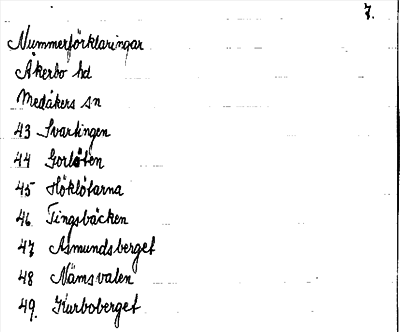 7.
Nummerförklaringar
Åkerbo hd
Medåkers sn
43 Svartingen
44 Gorlöten
45 Höklötarna
46 Tingsbäcken
47 Asmundsberget
48 Nämsvalen
49. Kurboberget